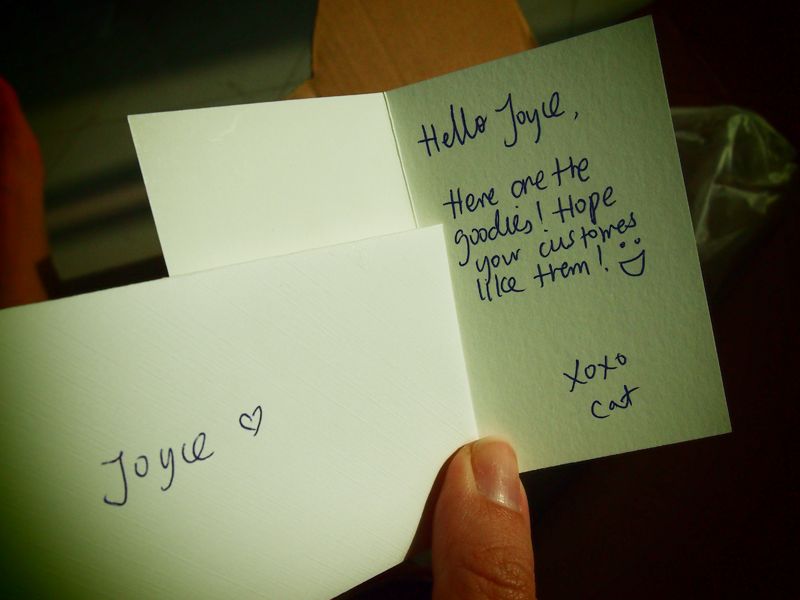 Hello Joyce,
Here are the
goodies! Hope
your customes
like them!
xoxo
cat
Joyce